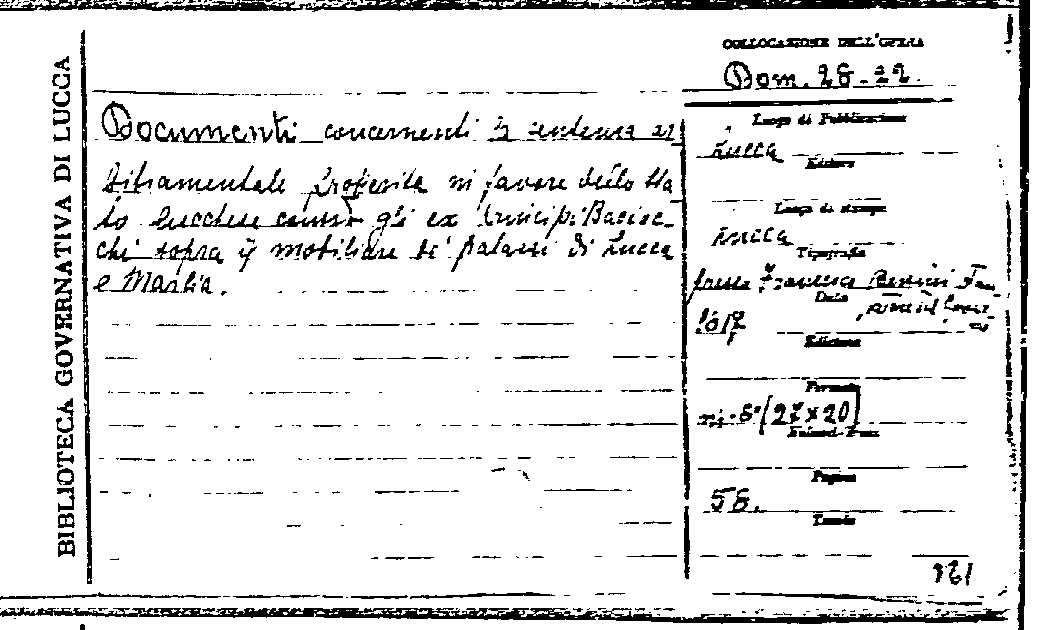 BIBLIOTECA GOVERNATIVA DI LUCCA
COLLOCAZIONE DELL'OPERA
Dom. 28-22.
Documenti concernenti la sentenza ar
bitramentale proferita in favore dello Sta
to Lucchese contro gli ex Principi Bacioc-
chi sopra il mobiliare de' palazzi di Lucca
e Marlia.
Luogo di Pubblicazione
Lucca
Editore
Luogo di stampa
Lucca
Tipografia
presso Francesco Bertini
Data
Edizione
Formato
in-8° (27x20)
Pagine
58.
Tavole